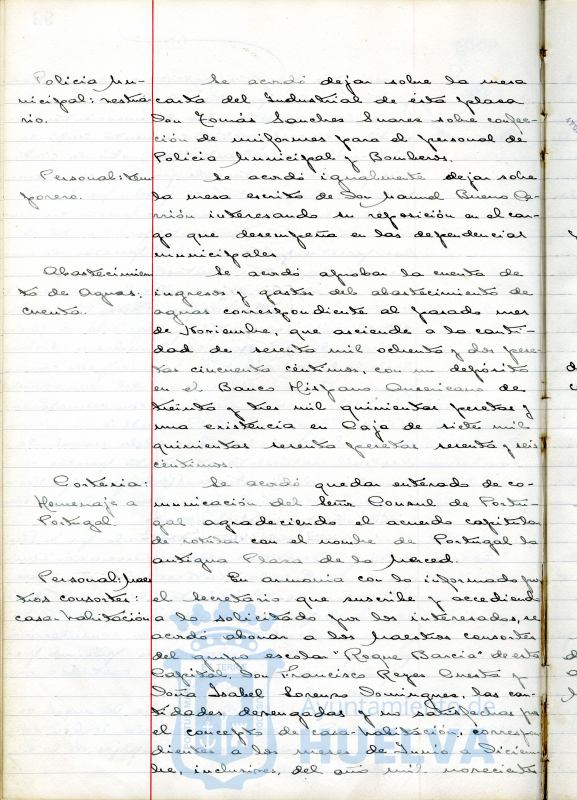 Policía Mu-
nicipal: vestua-
rio.
Se acordó dejar sobre la mesa
carta del Industrial de ésta plaza
Don Tomás Sanches Suares sobre confec-
ción de uniformes para el personal de
Policía Municipal y Bomberos.
Personal: tem
porero.
Se acordó igualmente dejar sobre
la mesa escrito de Don Manuel Bueno Ca-
rrión interesando su reposición en el car-
go que desempeña en las dependencias
municipales.
Abastecimien
to de Aguas:
cuenta.
Se acordó aprobar la cuenta de
ingresos y gastos del abastecimiento de
aguas correspondiente al pasado mes
de Noviembre, que asciende a la canti-
dad de sesenta mil ochenta y dos pese-
tas cincuenta céntimos, con un depósito
en el Banco Hispano Americano de
treinta y tres mil quinientas pesetas y
una existencia en Caja de siete mil
quinientas sesenta pesetas sesenta y seis
céntimos.
Cortesía:
Homenaje a
Portugal.
Se acordó quedar enterado de co-
municación del Señor Consul de Portu-
gal agradeciendo el acuerdo capitular
de rotular con el nombre de Portugal la
antigua Plaza de la Merced.
Personal: Maes
tros consortes:
casa-habitación
En armonía con lo informado por
el Secretario que suscribe y accediendo
a lo solicitado por los interesados, se
acordó abonar a los Maestros consortes
del grupo escolar "Roque Barcia" de esta
Capital, Don Francisco Reyes Cuesta y
Doña Isabel Lorenzo Domingues, las can-
tidades devengadas y no satisfechas por
el concepto de casa-habitación, correspon-
diente a los meses de Junio a Diciem-
bre, inclusives, del año mil novecientos
Ayuntamiento de
HUELVA